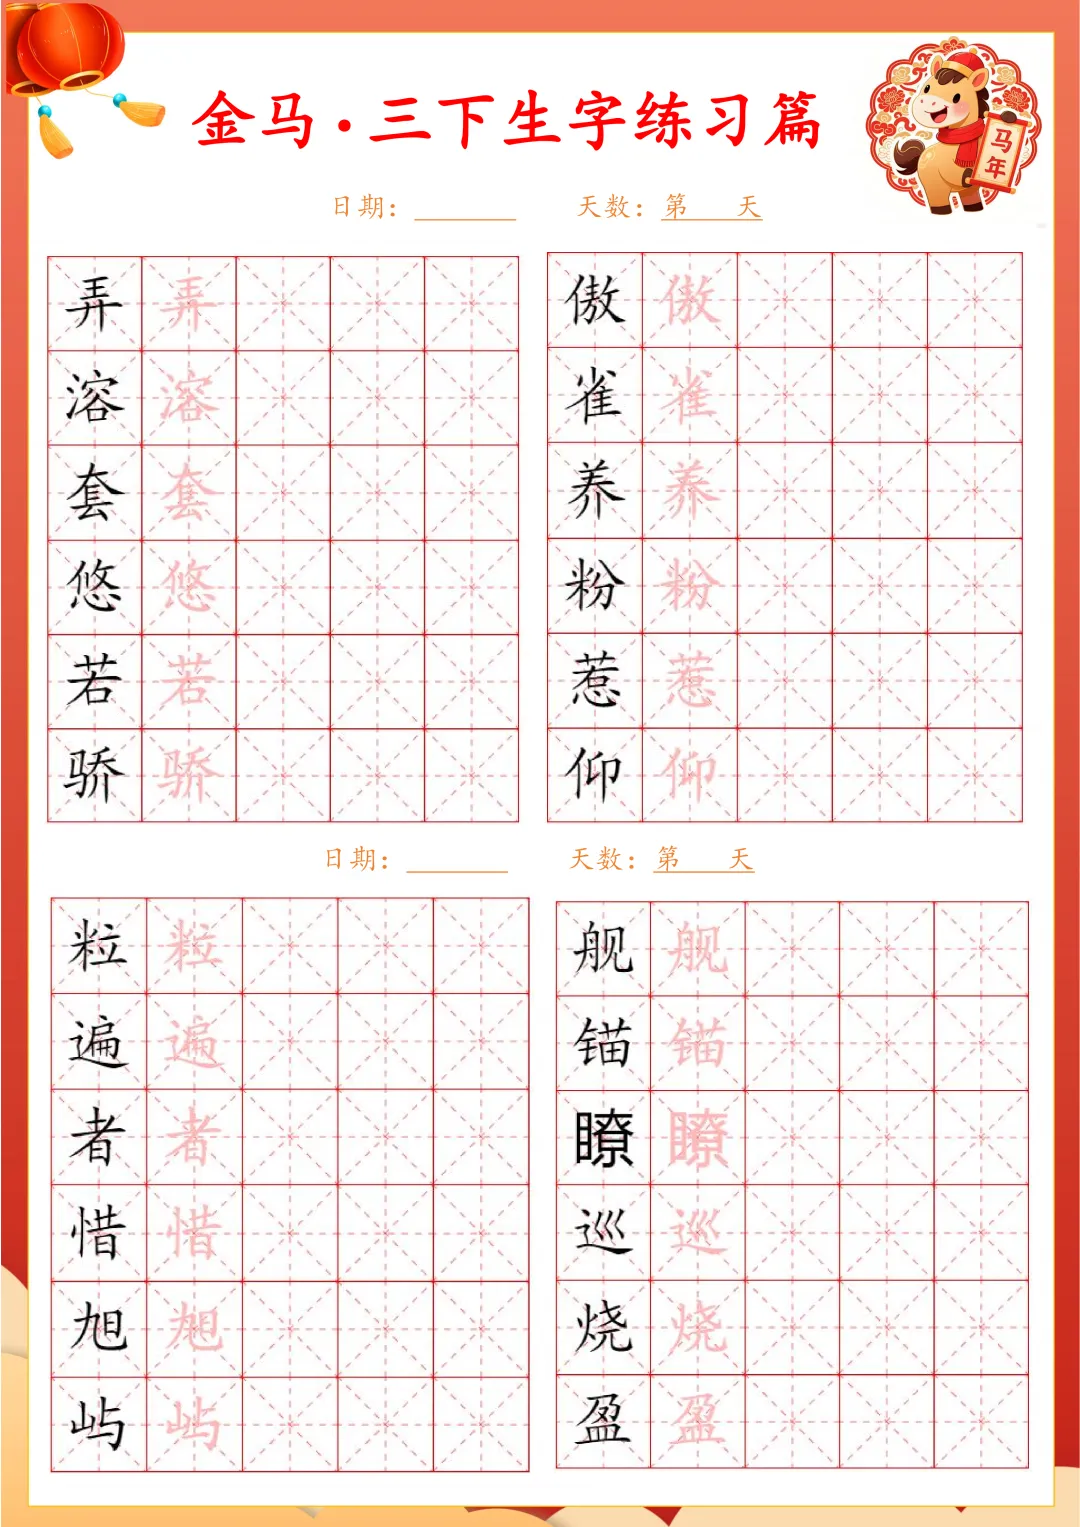 金马·三下生字练习篇
马年
日期：_______ 天数：第 天
弄 弄 傲 傲
溶 溶 雀 雀
套 套 养 养
悠 悠 粉 粉
若 若 惹 惹
骄 骄 仰 仰
日期：_______ 天数：第 天
粒 粒 舰 舰
遍 遍 锚 锚
者 者 瞭 瞭
惜 惜 巡 巡
旭 旭 烧 烧
屿 屿 盈 盈